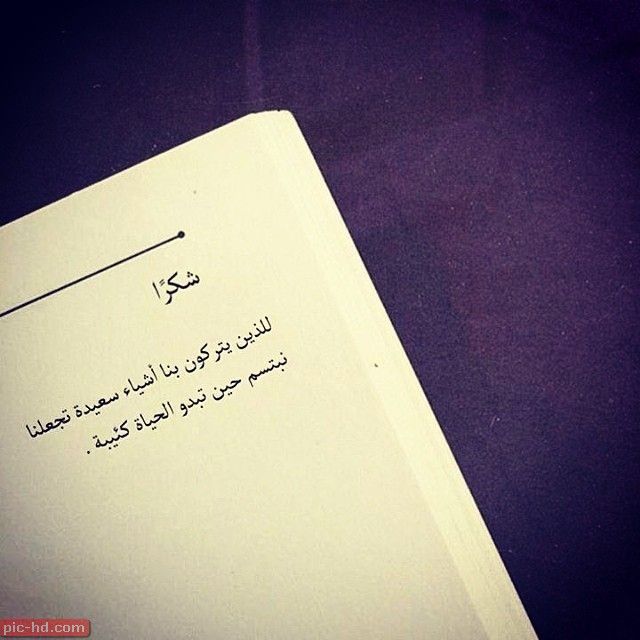 شكرًا
للذين يتركون بنا أشياء سعيدة تجعلنا
نبتسم حين تبدو الحياة كئيبة .
pic-hd.com